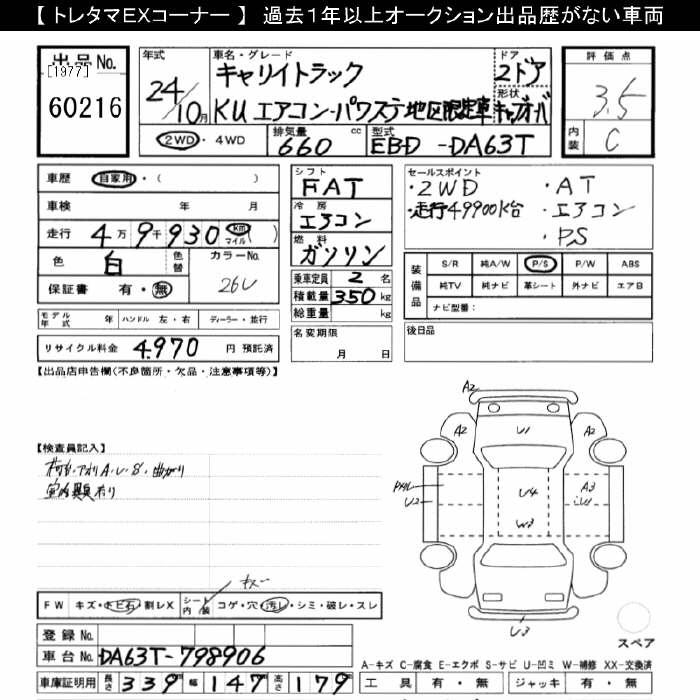 【 トレタマEXコーナー 】 過去1年以上オークション出品歴がない車両
出品No.
[1977]
60216
年式
24/10月
車名・グレード
キャリイトラック
KU エアコン・パワステ地区限定車
ドア
2ドア
形状
キャブオーバ
2WD・4WD
排気量
660 cc
型式
EBD -DA63T
評価点
3.5
内装
C
車歴 自家用・( )
車検 年 月
走行 4万9千930 km マイル )
色 白 色替 カラーNo.
26U
保証書 有・無
モデル年式 年 ハンドル 左・右 ディーラー・並行
リサイクル料金 4,970 円 預託済
シフト
FAT
冷房
エアコン
燃料
ガソリン
乗車定員 2 名
積載量 350 kg
総重量 kg
名変期限
月 日
セールスポイント
・2WD ・AT
・走行49900K台 ・エアコン
・PS
装備品
S/R 純A/W P/S P/W ABS
純TV 純ナビ 革シート 外ナビ エアB
ナビ型番：
後日品
【出品店申告欄(不良箇所・欠品・注意事項等)】
【検査員記入】
荷台・アオリA・U・S・曲がり
室内異臭有り
A2
A2 U1 A2
U4
W3
A3
U2
U3
スペア
FW キズ・トビ石・割レX シート 内/装 コゲ・穴・汚レ・シミ・破レ・スレ
登録No.
車台No. DA63T-798906
車庫証明用 長さ 339 幅 147 高さ 179
A-キズ C-腐食 E-エクボ S-サビ U-凹ミ W-補修 XX-交換済
工具 有・無 ジャッキ 有・無